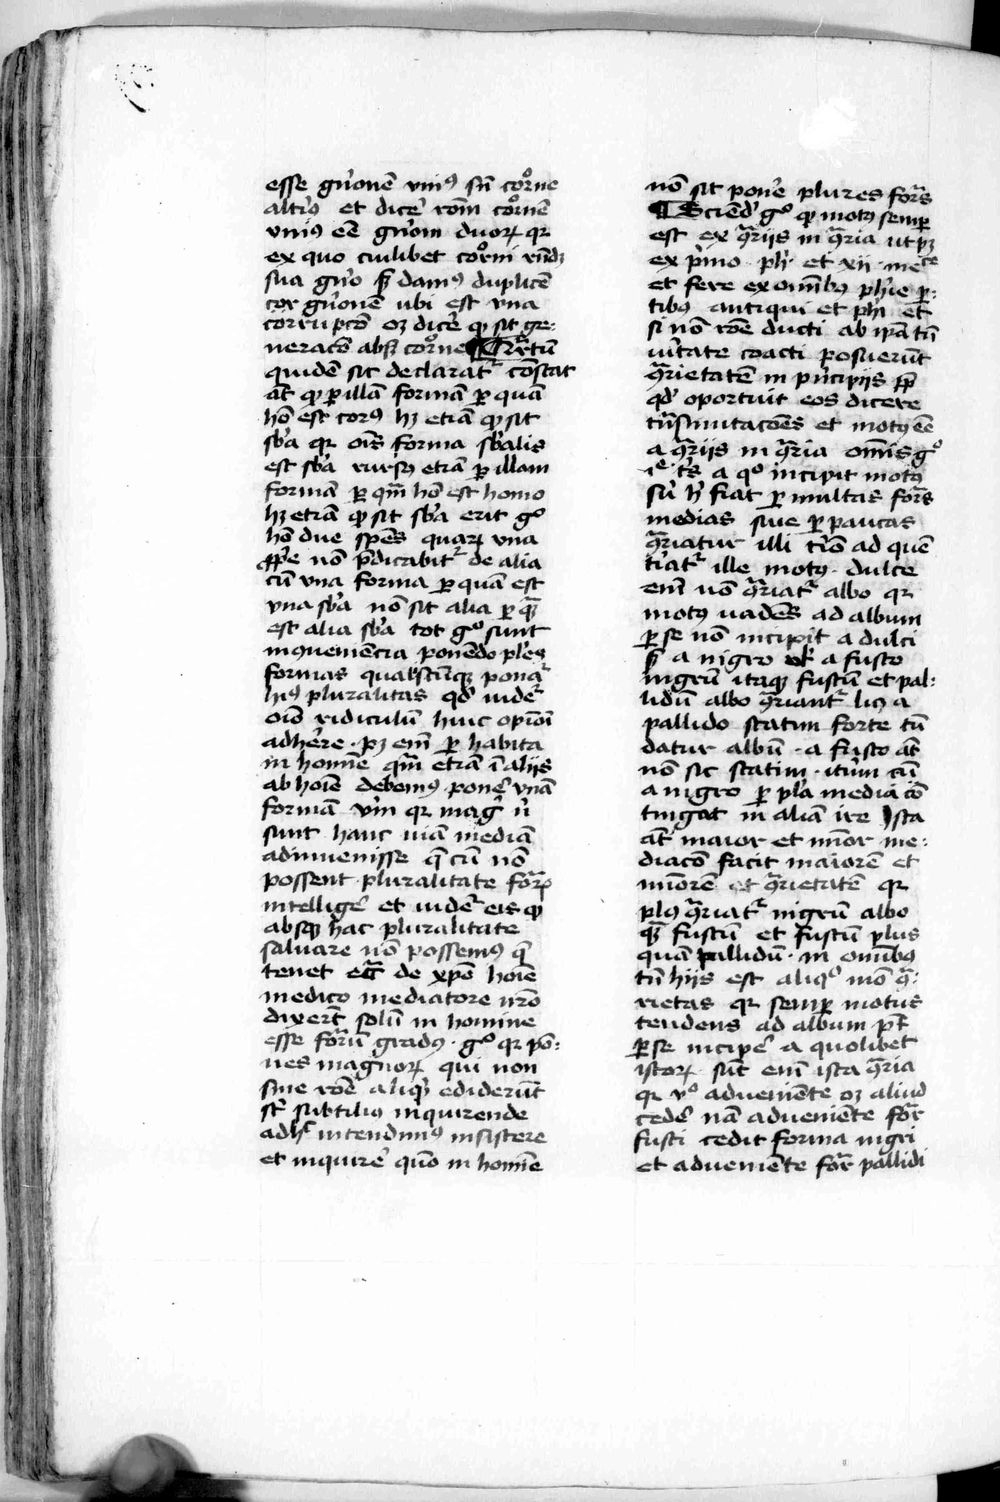 esse gn̄onē vniꝰ sn̄ corͦne
altiꝰ et dicē rōm corͦnē
vniꝰ eē gn̄om duorꝝ qr
ex quo cuilibet corͦni rn̄dꝫ
sua gn̄o sꝫ damꝰ duplicē
cor gn̄onē ubi est vna
corrupcō oꝫ dicē ꝙ sit ge-
neracō absꝫ corͦne ¶ Quartū
quidē sic declaratᷣ constat
āt ꝙ ꝑ illā formā ꝑ quā
hō est corꝰ hꝫ etiā ꝙ sit
sb̄a qr oīs forma sb̄alis
est sb̄a rursꝰ etiā ꝑ illam
formā ꝑ qm̄ hō est homo
hꝫ etiā ꝙ sit sb̄a erit gͦ
hō due sp̄es quarꝝ vna
ꝓp̄e nō p̄dicabitᷣ de alia
cū vna forma ꝑ quā est
vna sb̄a nō sit alia ꝑ quā
est alia sb̄a tot gͦ sunt
inqueniēcia ponēdo plēs
formas qualscūqꝫ ponatᷣ
hiꝰ pluralitas qd̄ uidetᷣ
oīo ridiculū huic opīoī
adhēre · pꝫ enī ꝑ habita
in homīe qm̄ etiā ī aliis
ab hoīe debemꝰ ponē vnā
formā
sunt hanc uiā mediā
adinuenisse q̄ cū nō
possent pluralitatē forꝝ
intelligē et uidetᷣ eis ꝙ
absqꝫ hac pluralitate
saluare nō possemꝰ q̄
tenet de xp̄o hoīe
medico mediatore nr̄o
dixerūt solū in homine
esse forūm gradꝰ · gͦ qr pō-
nes magnorꝝ qui non
sine rōe aliqͥd ediderūt
sūt subtiliꝰ inquirende
adhͨ intendimꝰ insistere
et inquirē quō in homīe
nō sit ponē plures forās
¶ Sciēdū gͦ ꝙ motꝰ semꝑ
est ex q̄riis in q̄ria ut pꝫ
ex pͥmo · phͥ · et xii · meͭᶜᵉ
et fere ex omībꝰ phīe ꝑ-
tibꝰ antiqui et phī et
si nō rōe ducti ab ip̄a tn̄
ui̇tate coacti posuerūt
q̄rietatē in pͥncipiis ꝓp̄
qd̄ oportuit eos dicere
trāsmutacōēs et motꝰ eē
a q̄riis in q̄ria omīs gͦ
a qͦ incipit motꝰ
sū hͨ fiat ꝑ multas forās
medias siue ꝑ paucas
q̄riatur illi tīo ad quē
tīatᷣ ille motꝰ · dulce
enī nō q̄riatᷣ albo qr
motꝰ uadēs ad album
ꝑ se nō incipit a dulci
sꝫ a nigro ul̄ a fusco
nigrū itaqꝫ fuscū et pal-
lidū albo q̄riantᷣ licꝫ a
pallido statim forte tn̄
datur albū · a fusco āt
nō sic statim · itꝰm cū
a nigro ꝑ pl̄a media cō
tingat in aliā ire Ista
āt maior et mīor me-
diacō facit maiorē et
mīorē et q̄rietatē qr
plꝰ q̄riatᷣ nigrū albo
quā fuscū et fuscū plus
quam pallidū · in omībꝰ
tn̄ hiis est aliqͦ mō q̄-
rietas qr semꝑ motus
tendens ad album pt̄
ꝑ se incipē a quolibet
istorꝝ sūt enī ista q̄ria
qr vͦ adueniēte oꝫ aliud
cedē nā adueniēte forā
fusci cedit forma nigri
et adueniēte forā pallidi